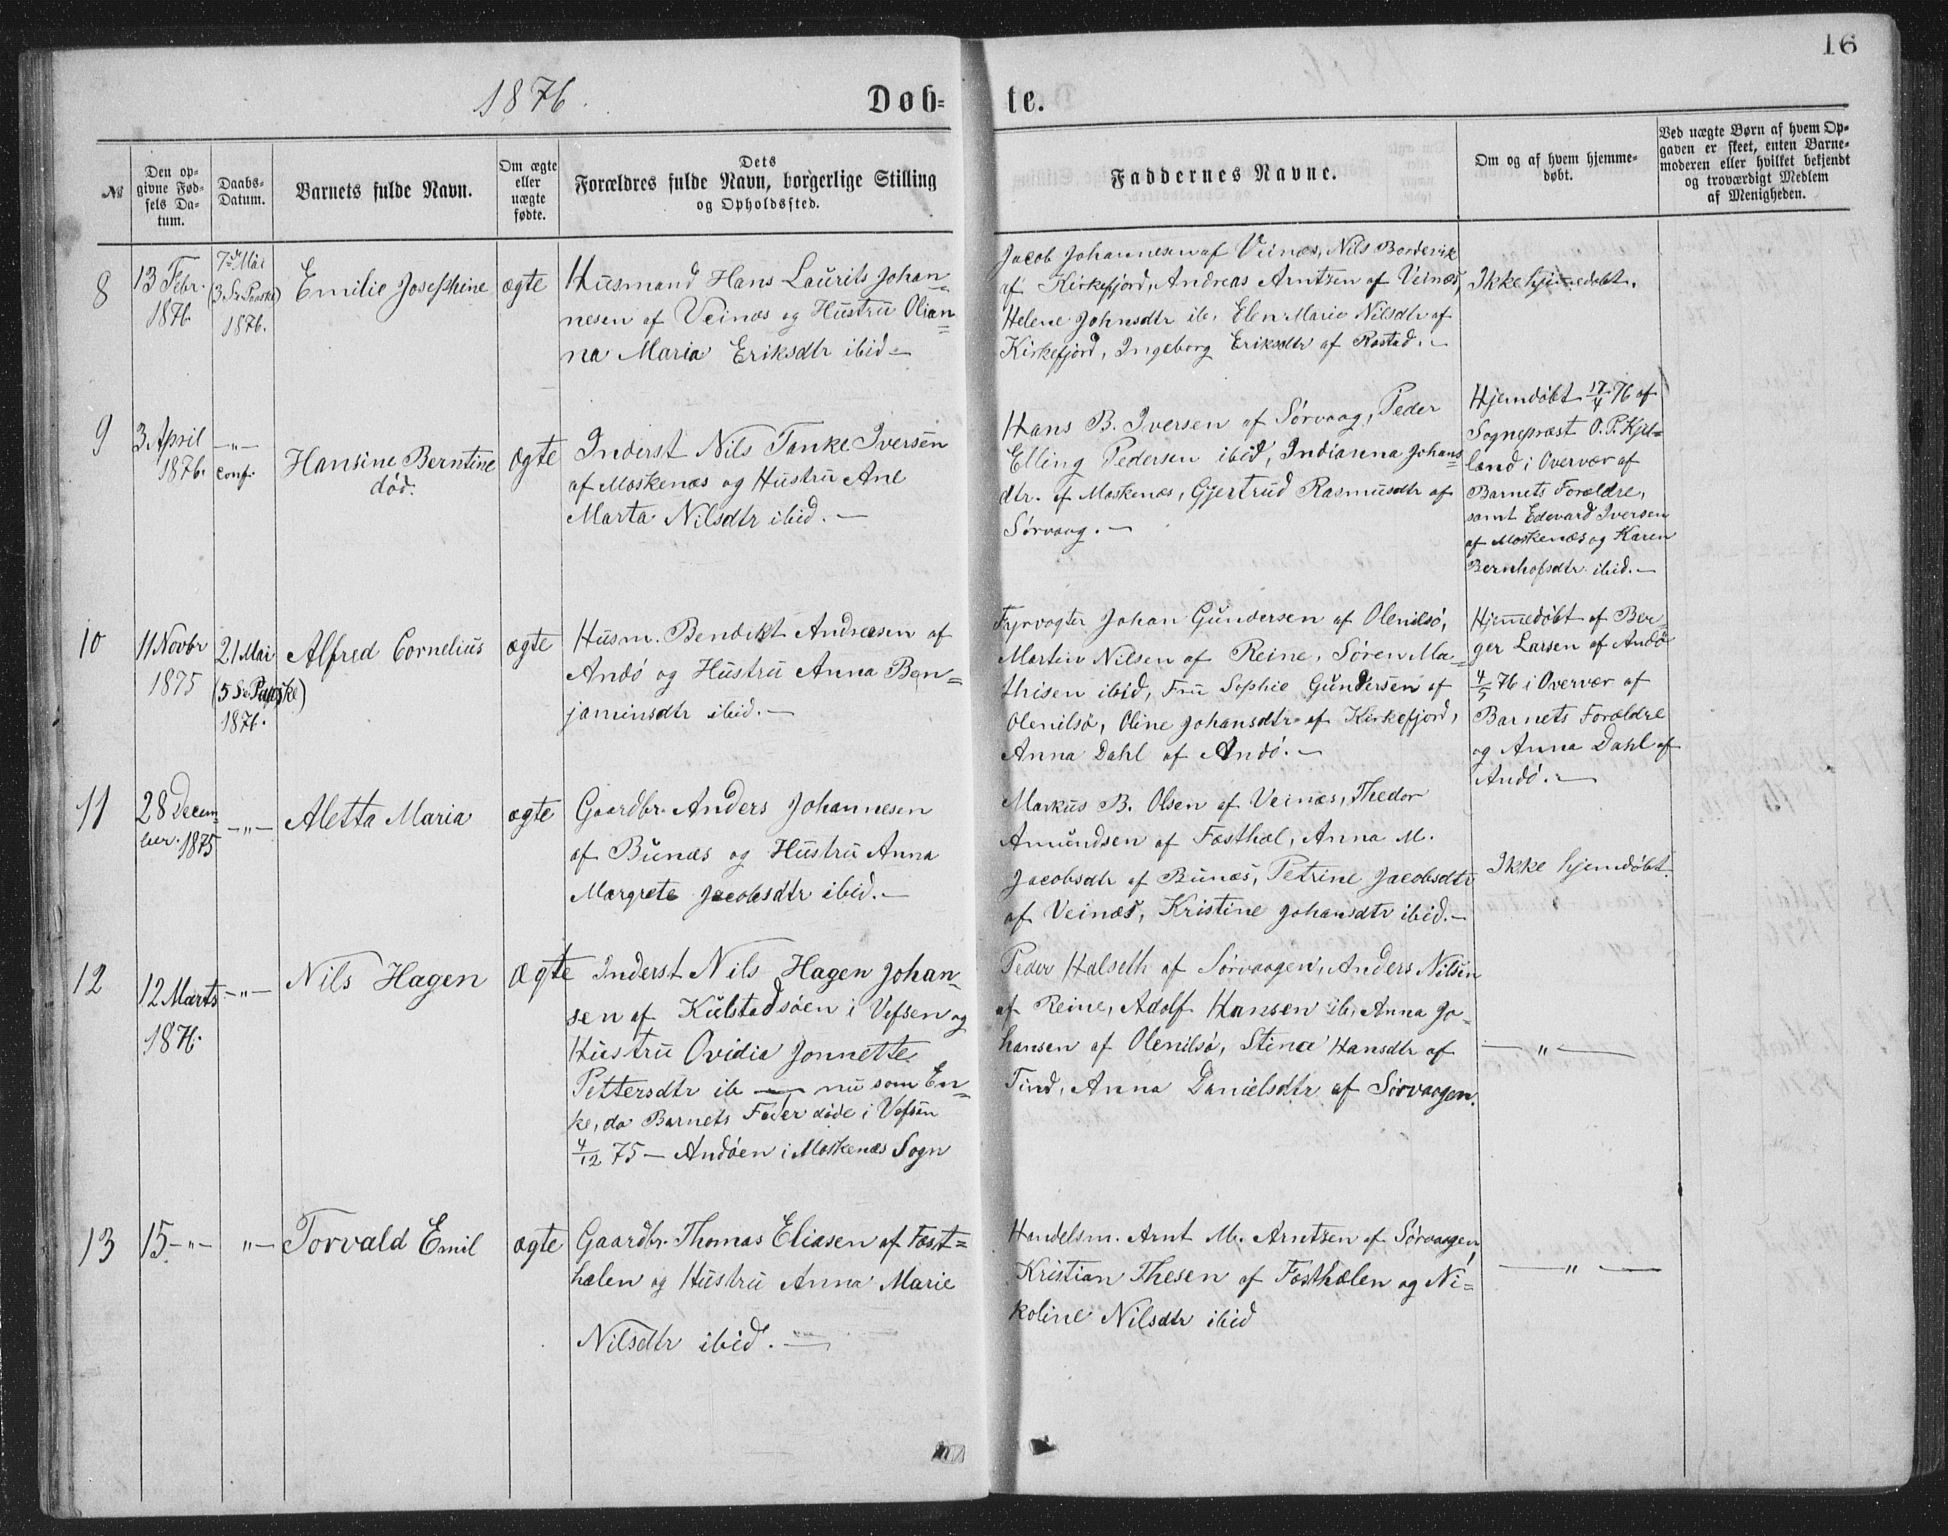 16
1876.
Døb-
te.
№
Den op-
givne Fød-
sels Da-
tum.
Daabs-
Datum.
Barnets fulde Navn.
Om ægte
eller
uægte
fødte.
Dets
Forældres fulde Navn, borgerlige Stilling
og Opholdssted.
Faddernes Navne.
Om og af hvem hjemme-
døbt.
Ved uægte Børn af hvem Op-
gaven er skeet, enten Barne-
moderen eller hvilket bekjendt
og troværdigt Medlem
af Menigheden.
8
13 Febr.
1876
7de Mai
(3. S. e. Paaske)
1876.
Emilie Josephine
ægte
Husmand Hans Laurits Johan-
nesen af Veinæs og Hustru Olian-
na Maria Eriksdtr ibid —
Jacob Johannesen af Veinæs, Nils Borderik
af Kirkefjord, Andreas Arntzen af Veinæs,
Helene Johnsdtr ib, Elen Marie Nilsdtr af
Kirkefjord, Ingeborg Eriksdtr af Rostad. —
Ikke hjemmedøbt.
9
3 April
1876.
—"—
conf.
Hansine Berntine
død.
ægte
Inderst Nils Tanke Iversen
af Moskenæs og Hustru Ane
Marta Nilsdtr ibid. —
Hans B. Iversen af Sørvaag, Peder
Elling Pedersen ibid, Indianna Johans
dtr. af Moskenæs, Gjertrud Rasmusdtr af
Sørvaag. —
Hjemdøbt 17/4 76 af
Sognepræst O. P. Kjel-
land i Overvær af
Barnets Forældre,
samt Edevard Iversen
af Moskenæs og Karen
Bernhofsdtr ibid. —
10
11 Novbr
1875
21 Mai
(5 S. e. Paaske)
1876.
Alfred Cornelius
ægte
Husm. Bendikt Andreasen af
Andø og Hustru Anna Ben-
jaminsdtr ibid. —
Fyrvogter Johan Gundersen af Olenilsø,
Martin Nilsen af Reine, Søren Ma-
thisen ibid, Fru Sophie Gundersen af
Olenilsø, Oline Johansdtr af Kirkefjord,
Anna Dahl af Andø. —
Hjemmedøbt af Ber-
ger Larsen af Andø
76 i Overvær af
Barnets Forældre
og Anna Dahl af
Andø. —
11
28 Decem
ber. 1875
—"—
Aletta Maria
ægte
Gaardbr. Anders Johannesen
af Bunæs og Hustru Anna
Margrete Jacobsdtr ibid. —
Markus B. Olsen af Veinæs, Thedor
Amundsen af Fæsthæl, Anna M.
Jacobsdtr af Bunæs, Petrine Jacobsdtr
af Veinæs, Kristine Johansdtr ibid. —
Ikke hjemdøbt.
12
12 Marts
1876.
—"—
Nils Hagen
ægte
Inderst Nils Hagen Johan-
sen af Kulstadsøen i Vefsen og
Hustru Ovidia Jonnette
Pettersdtr ib — nu som En-
ke, da Barnets Fader døde i Vefsen
4/12 75 — Andøen i Moskenæs Sogn
Peder Halseth af Sørvaagen, Anders Nilsen
af Reine, Adolf Hansen ib, Anna Jo-
hansen af Olenilsø, Stina Hansdtr af
Tind, Anna Danielsdtr af Sørvaagen.
—"—
13
15 —"—
"—
Torvald Emil
ægte
Gaardbr. Thomas Eliasen af Fæst-
hælen og Hustru Anna Marie
Nilsdtr ibid. —
Handelsm. Arnt M. Arntzen af Sørvaagen,
Kristian Thesen af Fæsthælen og Ni-
koline Nilsdtr ibid
—"—